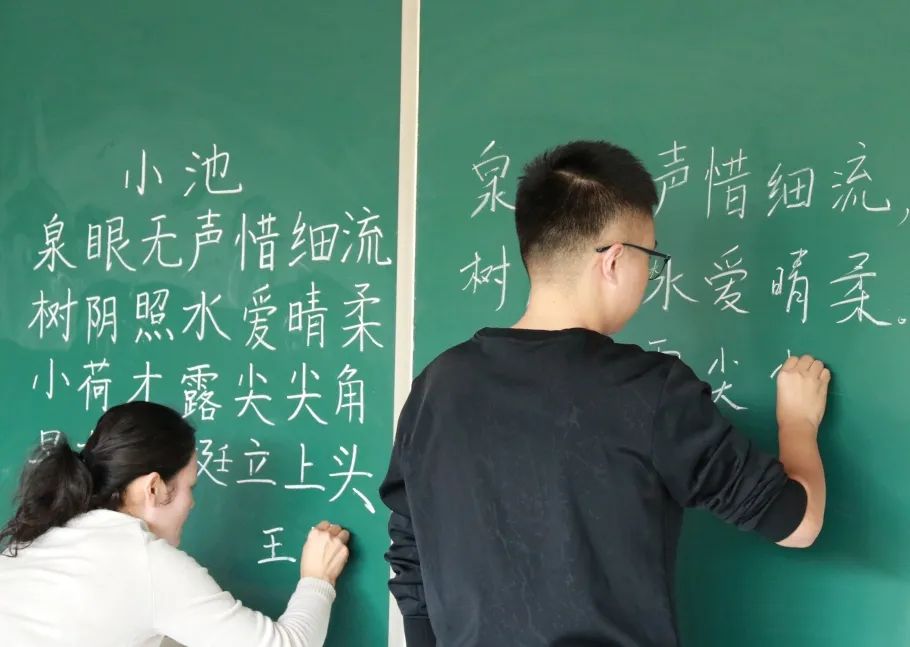 小池
泉眼无声惜细流
树阴照水爱晴柔
小荷才露尖尖角
立上头
王
泉声惜细流，
树水爱晴柔。
尖